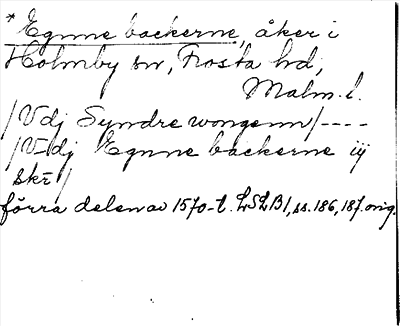 * Egnne backerne, åker i
Holmby sn, Frosta hd,
Malm. l.
/Vdj Syndre wongenn/----
/Vdj Egnne backerne iij
skr/
förra delen av 1570-t. LSLB1, ss. 186, 187. orig.